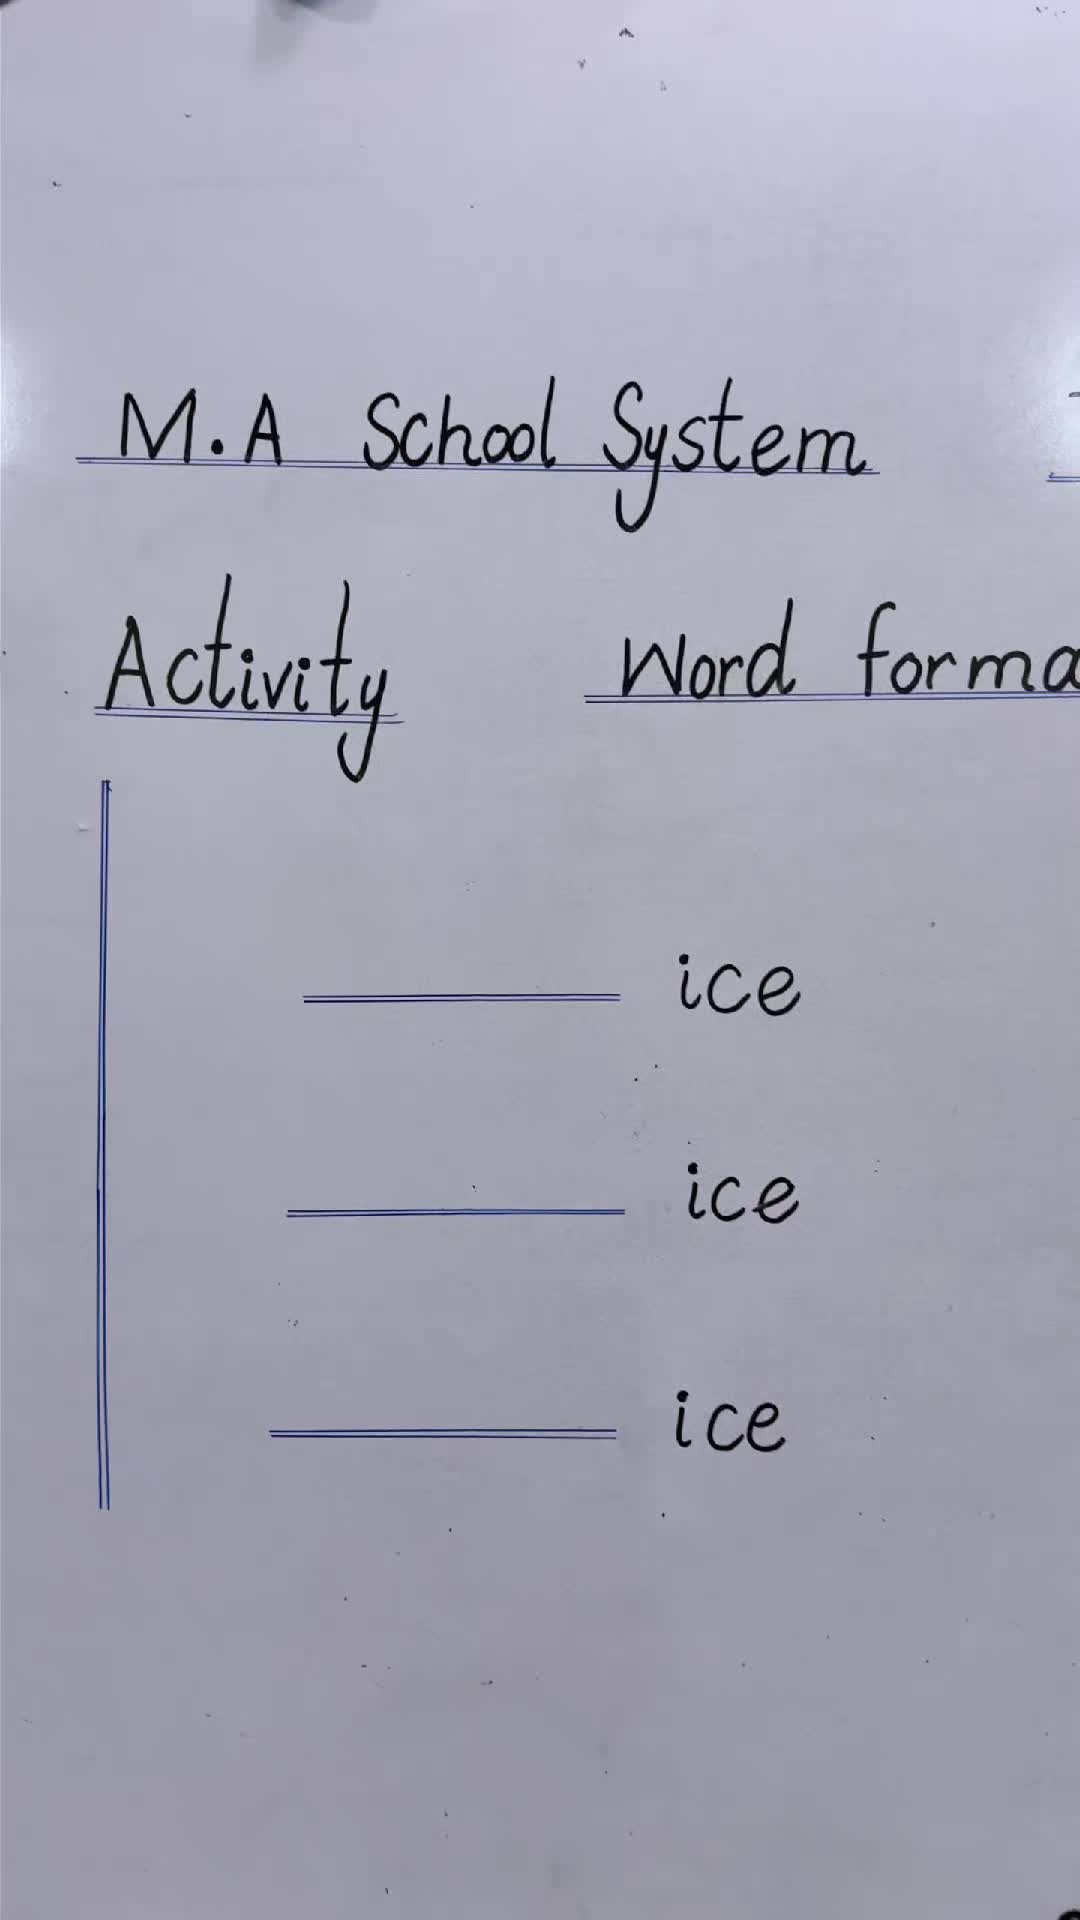 M.A School System
Activity Word forma
ice
ice
ice